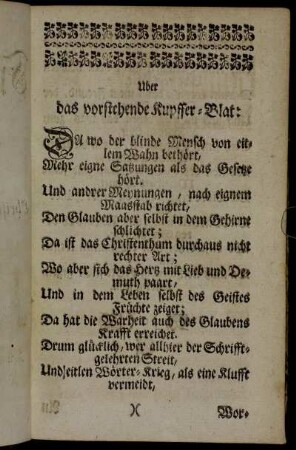 Uber
das vorstehende Kupffer-Blat:
DA wo der blinde Mensch von eit-
lem Wahn bethört,
Mehr eigne Satzungen als das Gesetze
hört.
Und andrer Meynungen, nach eignem
Maasstab richtet,
Den Glauben aber selbst in dem Gehirne
schlichtet;
Da ist das Christenthum durchaus nicht
rechter Art;
Wo aber sich das Hertz mit Lieb und De-
muth paart,
Und in dem Leben selbst des Geistes
Früchte zeiget;
Da hat die Warheit auch des Glaubens
Krafft erreichet.
Drum glücklich, wer allhier der Schrifft-
gelehrten Streit,
Und eitlen Wörter-Krieg, als eine Klufft
vermeidt,
)( Wor-